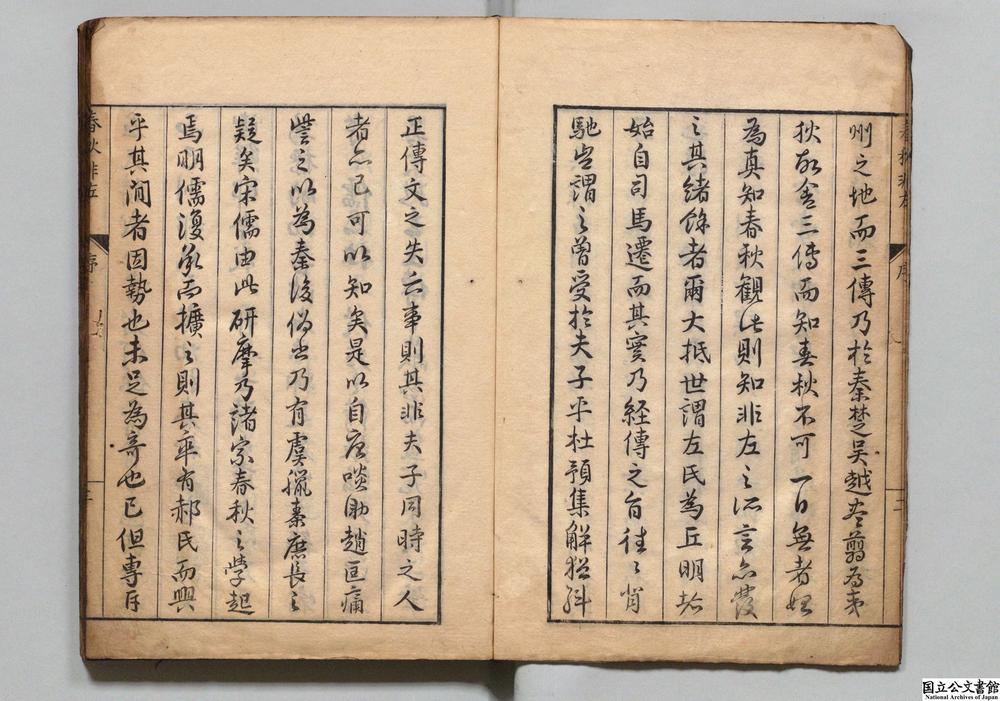 州之地而三傳乃於秦楚吳越盡翦為夷
狄故舍三傳而知春秋不可一日無者始
為真知春秋觀此則知非左之所言亦發
之其緒餘者爾大抵世謂左氏為丘明始
始自司馬遷而其實乃經傳之旨往〻背
馳豈謂之曾受於夫子乎杜預集解猶糾
正傳文之失云事則其非夫子同時之人
者亦已可以知矣是以自唐啖助趙匡痛
詆之以為秦後偽書乃有虞臘秦庶長之
疑矣宋儒由此研摩乃諸家春秋之學起
焉明儒復承而擴之則其率有郝氏而興
乎其間者因勢也未足為奇也已但專斥
春秋非左
序
三
春秋非左
序
二
国立公文書館
National Archives of Japan